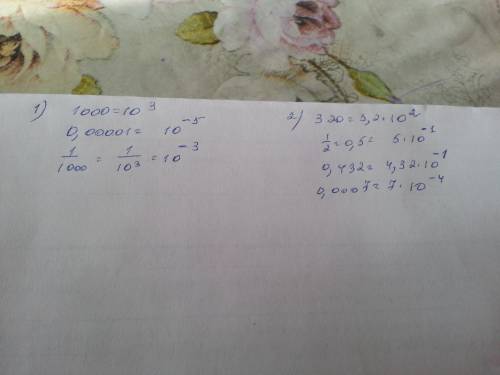 1) 1000=10³
0,00001= 10⁻⁵
1/1000 = 1/10³ = 10⁻³
2) 320=3,2·10²
1/2=0,5= 5·10⁻¹
0,432= 4,32·10⁻¹
0,0007=7·10⁻⁴